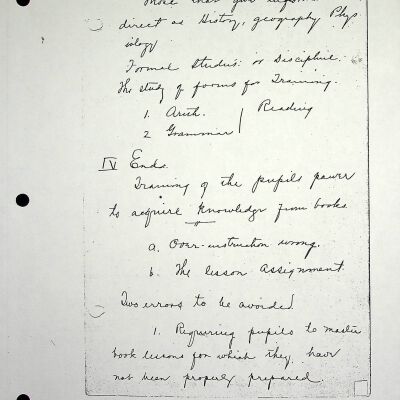 those that give inform
direct as History, geography Phys
iology
Formal Studies: or Discipline.
The study of forms for Training.
1. Arith. | Reading
2 Grammar
IV Ends.
Training of the pupils power
to acquire Knowledge from books
a. Over-instruction wrong.
b. The lesson assignment.
Two errors to be avoided
1. Requiring pupils to master
book lessons for which they have
not been properly prepared.